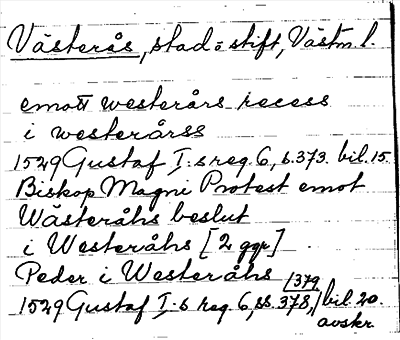 Västerås, stad o stift, Västm. l.
emott westerårs recess
i westerårss
1529 Gustaf I:s reg. 6, s. 373. bil. 15.
Biskop Magni Protest emot
Wästeråhs beslut
i Westeråhs [2 ggr]
Peder i Westeråhs
1529 Gustaf I:s reg. 6, ss. 378, /379/ bil. 20.
avskr.